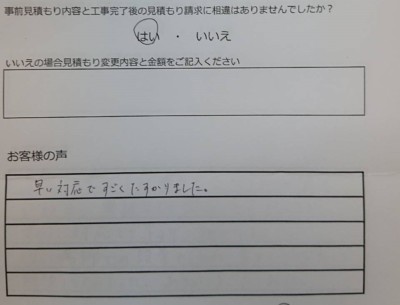 事前見積もり内容と工事完了後の見積もり請求に相違はありませんでしたか？
はい ・ いいえ
いいえの場合見積もり変更内容と金額をご記入ください
お客様の声
早い対応ですごくたすかりました。